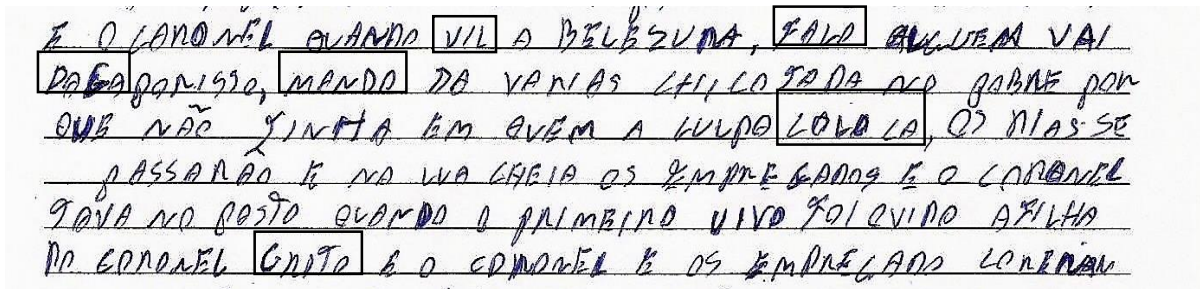 E O CORONEL QUANDO VIL A BELESURA, FALO ALGUEM VAI
PAGA PORISSO, MANDO DA VARIAS CHICOTADA NO POBRE POR
QUE NÃO TINHA EM QUEM A CULPA COLOCA, OS DIAS SE
PASSARÃO E NA LUA CHEIA OS EMPREGADOS E O CORONEL
TAVA NO POSTO QUANDO O PRIMEIRO UIVO FOI OUVIDO A FILHA
DO CORONEL GRITO E O CORONEL E OS EMPREGADO CORERAM